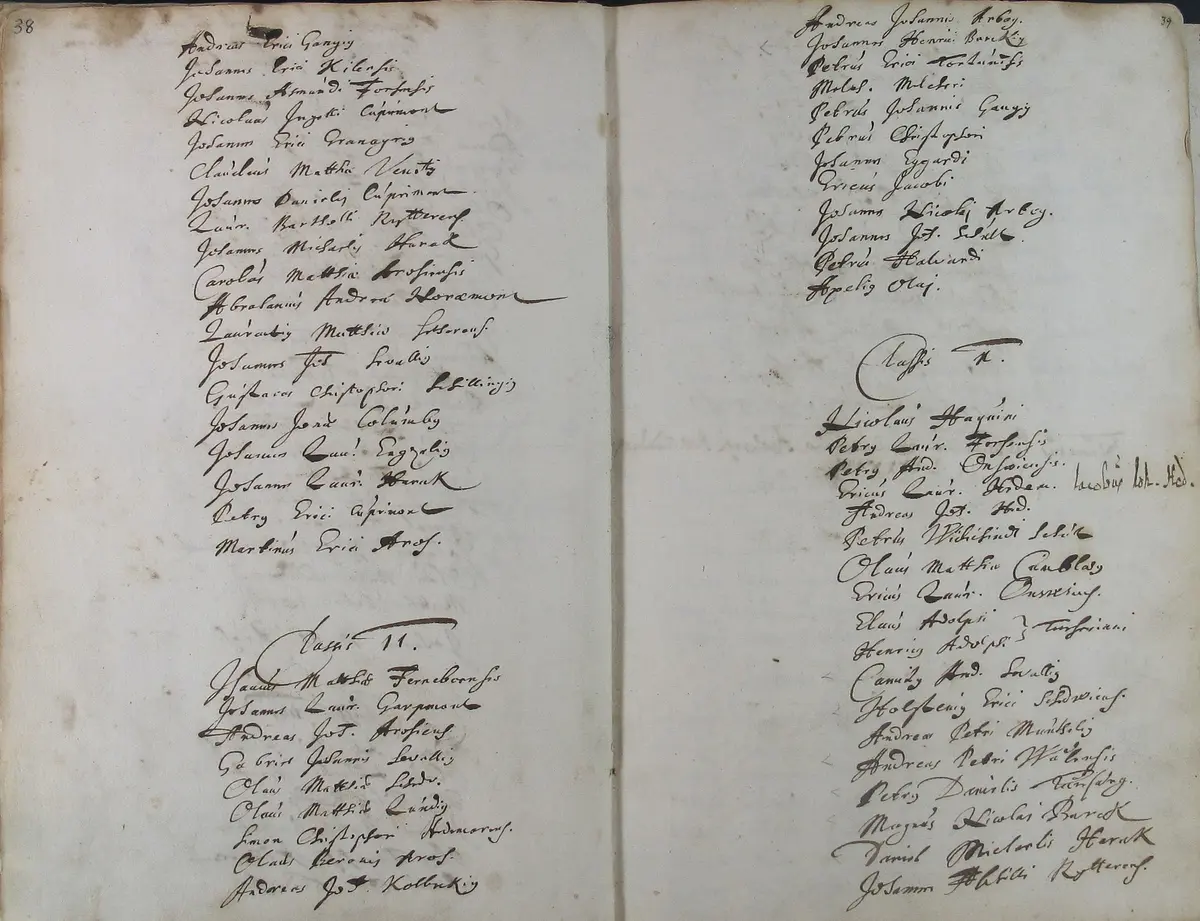 38
Andreas Erici Gangig
Johannes Erici Kilensis
Johannes Asmundi Forsensis
Nicolaus Ingelli Cuprimont
Johannes Erici Granagrg
Claudius Matthiæ
Johannes Danielis Cuprimont
Laur. Barthollи Rytterens.
Johannes Michaelis Harak
Carolus Matthiæ Arosiensis
Abrahamus Andreæ Noræmont
Laurentig Matthiæ
Johannes Joh. Sevallig
Gustavus Christophori Schillingig
Johannes Jonæ Columbg
Johannes Lau. Engzelig
Johannes Laur. Harak
Petrg Erici Cuprimont
Martinus Erici Aros.
Classis II.
Matthiæ Ferneboensis
Johannes Laur. Garpmont
Andreas Joh. Arosiens
Gabriel Johannis Sevallig
Olaus Matthiæ
Olaus Matthiæ Lundig
Simon Christophori Hedemorens.
Olaus Petronis Aros.
Andreas Joh. Kolbekig
39
Andreas Johannis Arbog.
Johannes Henrici Barckig
Petrus Erici Tortunensis
Melch. Melcheri
Petrus Johannis Gangig
Petrus Christophori
Johannes Eggardi
Ericus Jacobi
Johannes Nicolai Arbog.
Johannes Joh. Schult
Petrus Halvardi
Olaj.
Classis I.
Nicolaus Haquini
Petrg Laur. Forsensis
Petrg And. Onswiensis.
Ericus Laur. Hedem. Iacobus Ioh. Hed.
Andreas Joh. Hed.
Petrus Wichindi
Olaus Matthiæ
Ericus Laur. Onswiens.
Elaus Adolphi
Henricg Adolphi
Canutg And. Sevallig
Holstenig Erici Schedwiens.
Andreas Petri Munthelig
Andreas Petri Wålensis
Petrg Danielis
Magnus Nicolai Barck
Daniel Michaelis Harak
Johannes Rytterens.